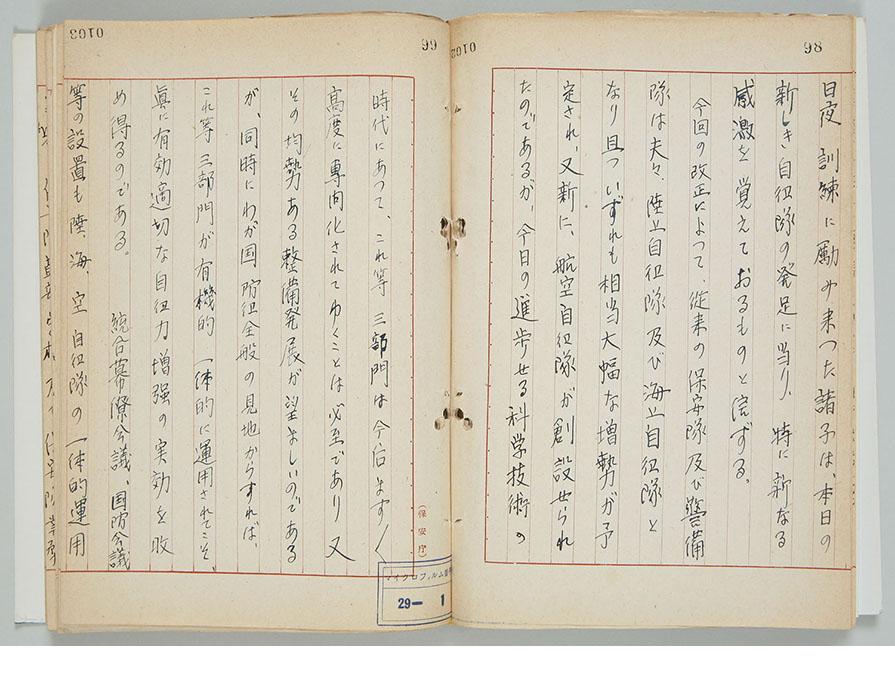 98
0102
日夜訓練に励み来つた諸子は、本日の
新しき自卫隊の発足に当り、特に新なる
感激を覚えておるものと信ずる。
今回の改正によつて、従来の保安隊及び警備
隊は夫々、陸上自卫隊及び海上自卫隊と
なり且ついずれも相当大幅な増勢が予
定され、又新に、航空自卫隊が創設せられ
たのであるが、今日の進歩せる科学技術の
99
0103
時代にあつて、これ等三部門は今后ますく
高度に専門化されてゆくことは必至であり又
その均勢ある整備発展が望ましいのである
が、同時にわが国防卫全般の見地からすれば、
これ等三部門が有機的一体的に運用されてこそ、
眞に有効適切な自卫力増强の実効を収
め得るのである。統合幕僚会議、国防会議
等の設置も陸、海、空自卫隊の一体的運用
(保安庁)
マイクロフィルム
29— 1